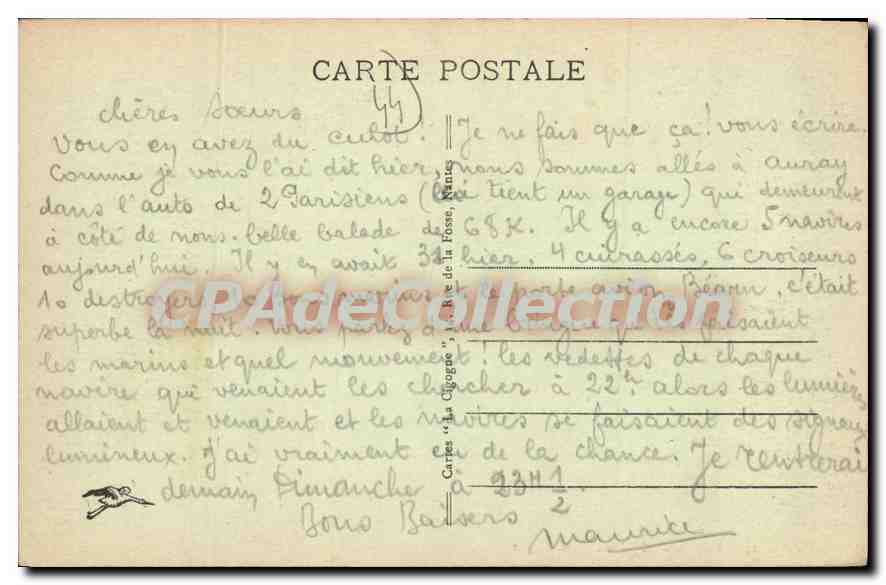 CARTE POSTALE
44
chères Sœurs
Vous en avez du culot! Je ne fais que ça! vous écrire.
Comme je vous l'ai dit hier, nous sommes allés à auray
dans l'auto de 2 Parisiens ( tient un garage) qui demeurent
à côté de nous. belle balade de 68 K. Il y a encore 5 navires
aujourd'hui. Il y en avait 31 hier. 4 cuirassés, 6 croiseurs
10 destroyers, sous marins et le porte avion Béarn, c'était
superbe la nuit. vous parlez d'une blague qu'ils faisaient
les marins et quel mouvement! les vedettes de chaque
navire qui venaient les chercher à 22h. alors les lumières
allaient et venaient et les navires se faisaient des signaux
lumineux. J'ai vraiment eu de la chance. Je rentrerai
demain Dimanche à 23H 1/2
Bons Baisers
Maurice
Cartes "La Cigogne", Rue de la Fosse, Nantes
CPADeCollection